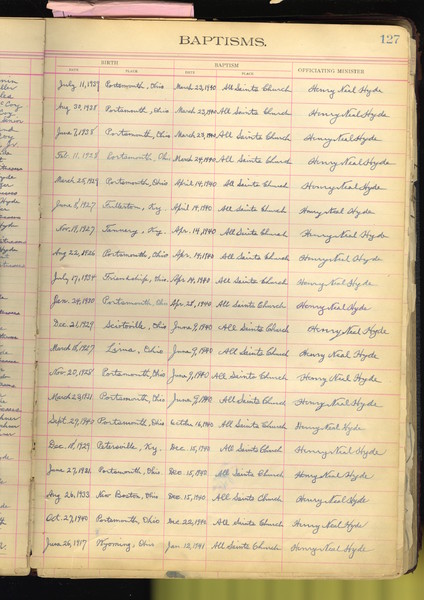 BAPTISMS. 127
BIRTH BAPTISM OFFICIATING MINISTER
DATE PLACE DATE PLACE
July 11, 1939 Portsmouth, Ohio March 22, 1940 All Saints Church Henry Neal Hyde
Aug 30, 1938 Portsmouth, Ohio March 23, 1940 All Saints Church Henry Neal Hyde
June 7, 1938 Portsmouth, Ohio March 23, 1940 All Saints Church Henry Neal Hyde
Feb. 11, 1928 Portsmouth, Ohio March 24, 1940 All Saints Church Henry Neal Hyde
March 25, 1929 Portsmouth, Ohio April 14, 1940 All Saints Church Henry Neal Hyde
June 8, 1927 Fullerton, Ky. April 14, 1940 All Saints Church Henry Neal Hyde
Nov. 18, 1927 Ky. Apr. 14, 1940 All Saints Church Henry Neal Hyde
Aug 22, 1926 Portsmouth, Ohio Apr. 14, 1940 All Saints Church Henry Neal Hyde
July 17, 1934 Friendship, Ohio Apr. 14, 1940 All Saints Church Henry Neal Hyde
Jan. 24, 1930 Portsmouth Ohio Apr. 28, 1940 All Saints Church Henry Neal Hyde
Dec 21, 1929 Sciotoville, Ohio June 9, 1940 All Saints Church Henry Neal Hyde
March 16, 1927 Lima, Ohio June 9, 1940 All Saints Church Henry Neal Hyde
Nov. 20, 1928 Portsmouth, Ohio June 9, 1940 All Saints Church Henry Neal Hyde
March 23, 1931 Portsmouth, Ohio June 9, 1940 All Saints Church Henry Neal Hyde
Sept. 29, 1940 Portsmouth, Ohio October 16, 1940 All Saints Church Henry Neal Hyde
Dec. 18, 1929 Ky. Dec. 15, 1940 All Saints Church Henry Neal Hyde
June 27, 1931 Portsmouth, Ohio Dec. 15, 1940 All Saints Church Henry Neal Hyde
Aug 26, 1933 New Boston, Ohio Dec. 15, 1940 All Saints Church Henry Neal Hyde
Oct. 27, 1940 Portsmouth, Ohio Dec. 22, 1940 All Saints Church Henry Neal Hyde
June 26, 1917 Wyoming, Ohio Jan. 12, 1941 All Saints Church Henry Neal Hyde